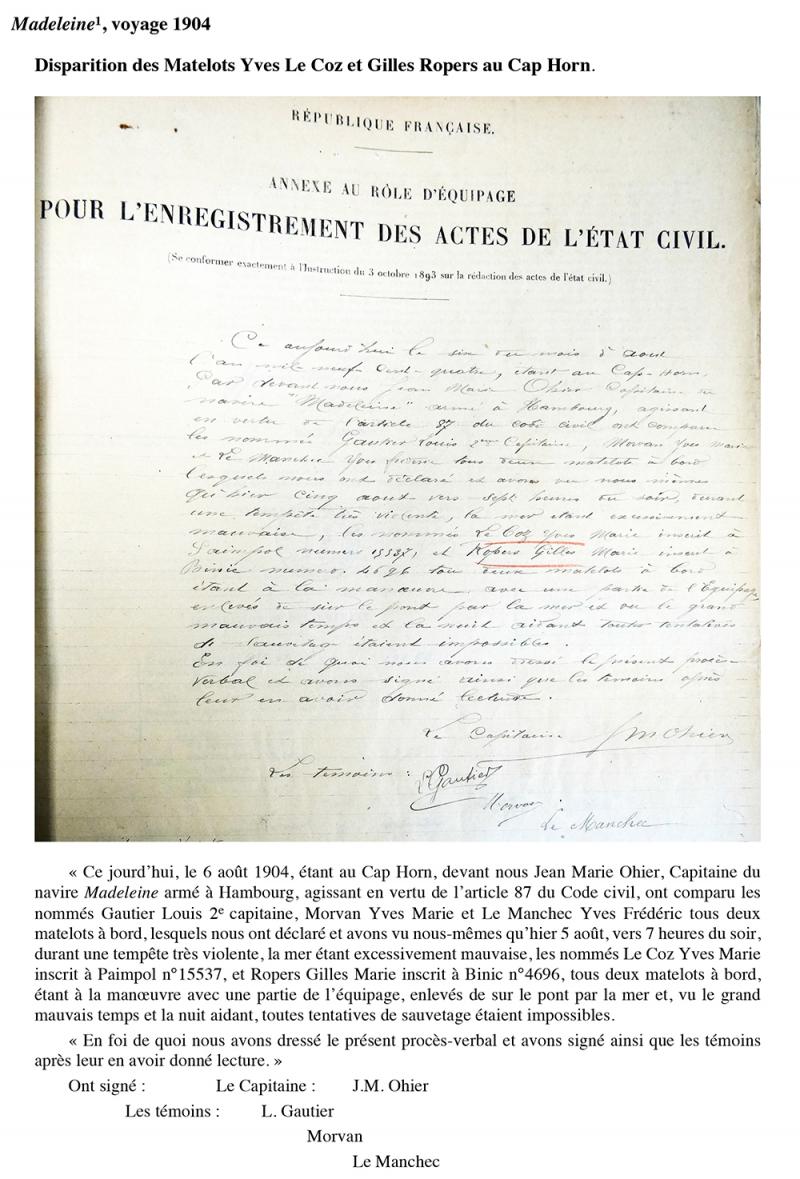 Madeleine¹, voyage 1904
Disparition des Matelots Yves Le Coz et Gilles Ropers au Cap Horn.
RÉPUBLIQUE FRANÇAISE.
ANNEXE AU RÔLE D'ÉQUIPAGE
POUR L'ENREGISTREMENT DES ACTES DE L'ÉTAT CIVIL.
(Se conformer exactement à l'Instruction du 3 octobre 1893 sur la rédaction des actes de l'état civil.)
Ce aujourd'hui le six du mois d'aout
l'an mil neuf cent quatre, étant au Cap-Horn.
Par devant nous Jean Marie Ohier Capitaine du
navire "Madeleine" armé à Hambourg, agissant
en vertu de l'article 87 du code civil ont comparu
les nommés Gautier Louis 2me Capitaine, Morvan Yves Marie
et Le Manchec Yves tous deux matelots à bord
lesquels nous ont déclaré et avons vu nous mêmes
qu'hier cinq aout vers sept heures du soir, durant
une tempête très violente, la mer étant excessivement
mauvaise, les nommés Le Coz Yves Marie inscrit à
Paimpol numero 15537, et Ropers Gilles Marie inscrit à
Binic numero. 4696 tou deux matelots à bord
étant à la manœuvre avec une partie de l'Equipage
enlevés de sur le pont par la mer et vu le grand
mauvais temps et la nuit aidant toutes tentatives
de sauvetage étaient impossibles.
En foi de quoi nous avons dressé le présent procès-
verbal et avons signé ainsi que les temoins après
leur en avoir donné lecture.
Le Capitaine JMOhier
Les temoins : L Gautier
Morvan
Le Manchec
« Ce jourd'hui, le 6 août 1904, étant au Cap Horn, devant nous Jean Marie Ohier, Capitaine du
navire Madeleine armé à Hambourg, agissant en vertu de l'article 87 du Code civil, ont comparu les
nommés Gautier Louis 2e capitaine, Morvan Yves Marie et Le Manchec Yves Frédéric tous deux
matelots à bord, lesquels nous ont déclaré et avons vu nous-mêmes qu'hier 5 août, vers 7 heures du soir,
durant une tempête très violente, la mer étant excessivement mauvaise, les nommés Le Coz Yves Marie
inscrit à Paimpol n°15537, et Ropers Gilles Marie inscrit à Binic n°4696, tous deux matelots à bord,
étant à la manœuvre avec une partie de l'équipage, enlevés de sur le pont par la mer et, vu le grand
mauvais temps et la nuit aidant, toutes tentatives de sauvetage étaient impossibles.
« En foi de quoi nous avons dressé le présent procès-verbal et avons signé ainsi que les témoins
après leur en avoir donné lecture. »
Ont signé : Le Capitaine : J.M. Ohier
Les témoins : L. Gautier
Morvan
Le Manchec